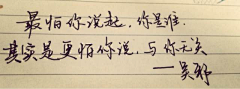 最怕你说起，你是谁.
其实是更怕你说，与你无关
——吴邪